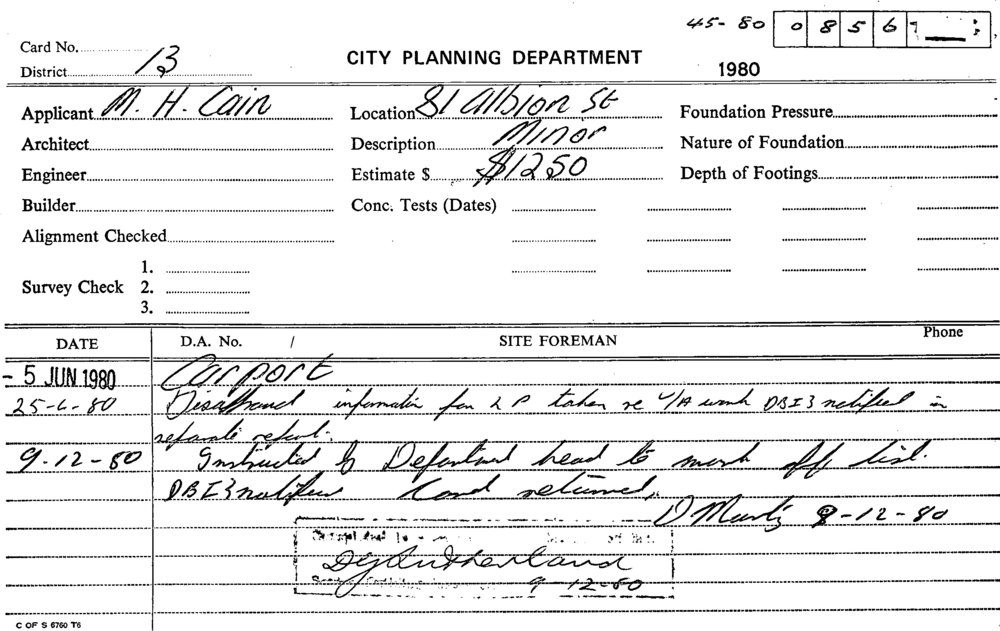 45-80 0 8 5 6 7
Card No.
District 13
CITY PLANNING DEPARTMENT
1980
Applicant M. H. Cain
Location 81 Albion St
Foundation Pressure
Architect
Description Minor
Nature of Foundation
Engineer
Estimate $ $1250
Depth of Footings
Builder
Conc. Tests (Dates)
Alignment Checked
1.
Survey Check 2.
3.
DATE D.A. No. / SITE FOREMAN Phone
- 5 JUN 1980 Carport
25-6-80 information for L P taken re U/A work DBI3 notified in
separate
9-12-80 Instructed by Department head to mark off list.
DBI3 notified Card returned.
9-12-80
DJ Sutherland
9-12-80
C OF S 6760 T6